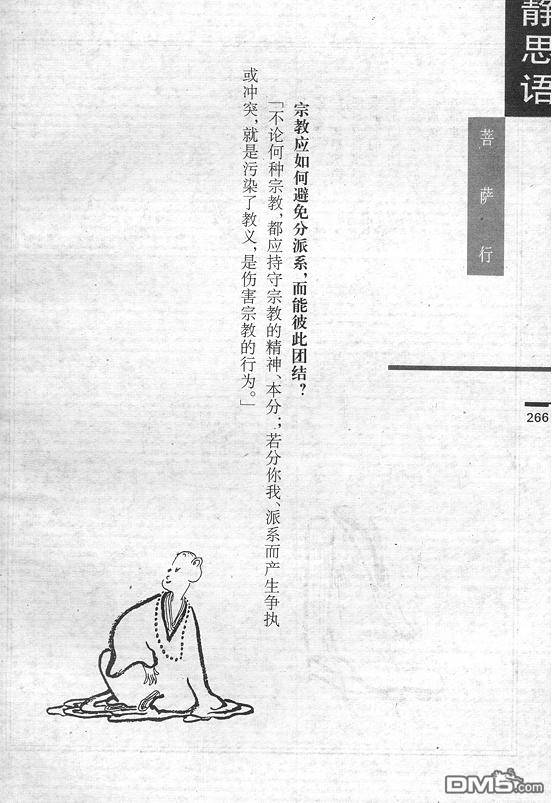 静思语
菩萨行
266
宗教应如何避免分派系，而能彼此团结？
「不论何种宗教，都应持守宗教的精神、本分；若分你我、派系而产生争执
或冲突，就是污染了教义，是伤害宗教的行为。」
DM5.com